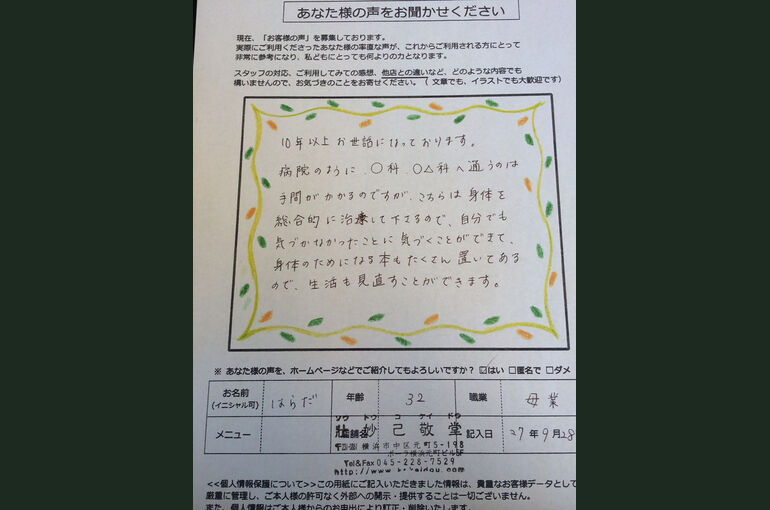 あなた様の声をお聞かせください
現在、「お客様の声」を募集しております。
実際にご利用くださったあなた様の率直な声が、これからご利用される方にとって
非常に参考になり、私どもにとっても何よりの力となります。
スタッフの対応、ご利用してみての感想、他店との違いなど、どのような内容でも
構いませんので、お気づきのことをお寄せください。（ 文章でも、イラストでも大歓迎です）
10年以上お世話になっております。
病院のように ○科 ○△科へ通うのは
手間がかかるのですが、こちらは身体を
総合的に治療して下さるので、自分でも
気づかなかったことに気づくことができて、
身体のためになる本もたくさん置いてある
ので、生活も見直すことができます。
※ あなた様の声を、ホームページなどでご紹介してもよろしいですか？ ☑はい □匿名で □ダメ
お名前 (イニシャル可) はらだ 年齢 32 職業 母業
メニュー 店舗名 記入日 27年9月28
ソウ トウ コ ケイ ドウ
壮 妙 己 敬 堂
横浜市中区元町5-198
ポーラ横浜元町ビル5F
Tel&Fax 045-228-7529
<<個人情報保護について>>この用紙にご記入いただきました情報は、貴重なお客様データとして
厳重に管理し、ご本人様の許可なく外部への開示・提供することは一切ございません。
また、個人情報はご本人様からのお申出により訂正・削除いたします。